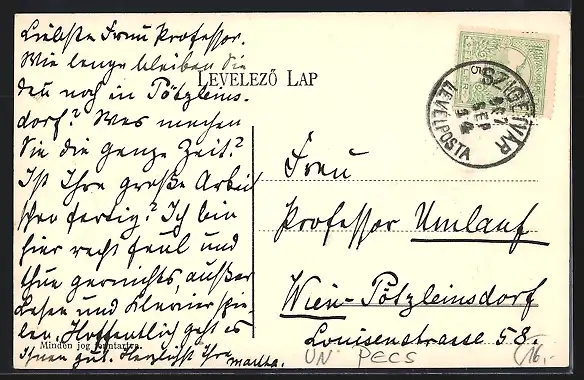 Liebste Frau Professor.
Wie lange bleiben Sie
denn noch in Pötzleins-
dorf? Was machen
Sie die ganze Zeit?
Ist Ihre große Arbeit
schon fertig? Ich bin
hier recht faul und
thue garnichts, außer
Lesen und Klavier spie-
len. Hoffentlich geht es
Ihnen gut. Herzlichst Ihre
Martha.
LEVELEZŐ LAP
SZIGETVÁR
LEVELPOSTA
SEP
5
Frau
Professor Umlauf
Wien-Pötzleinsdorf
Louisenstrasse 58.
Minden jog fenntartva.
UN PECS
16,-